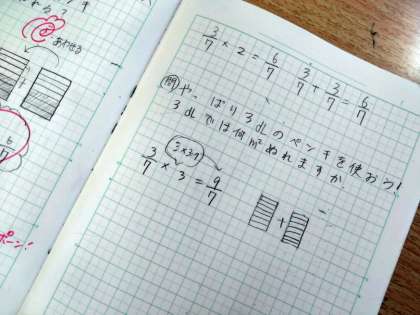 あわせる
3/7 × 2 = 6/7
3/7 + 3/7 = 6/7
問 やっぱり3dLのペンキを使おう!
3dLでは何m²ぬれますか。
3×3
3/7 × 3 = 9/7
+
ポーン!